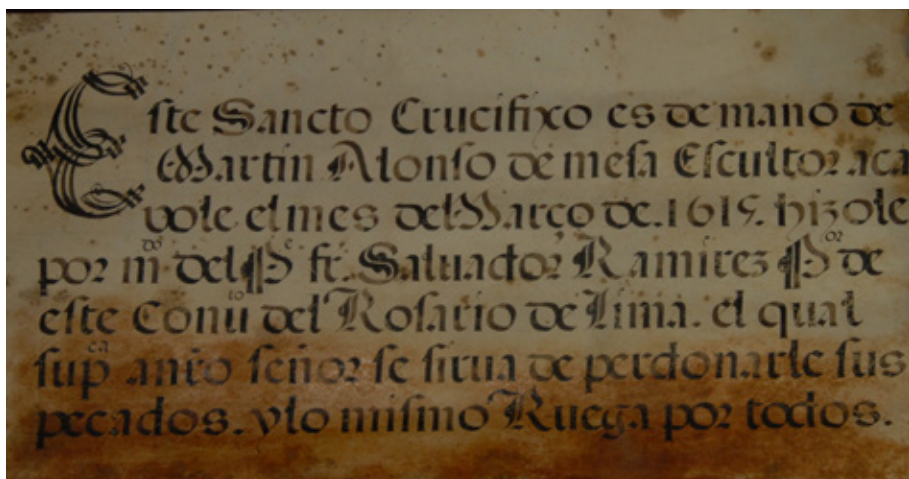 Este Sancto Crucifixo es de mano de
Martin Alonso de mesa Escultor aca
bole el mes del Março de.1615. hizole
por m.do del P.e fr. Saluador Ramirez P.or de
este Conu.to del Rosario de Lima. el qual
sup.ca a nr̃o señor se sirua de perdonarle sus
pecados. y lo mismo Ruega por todos.